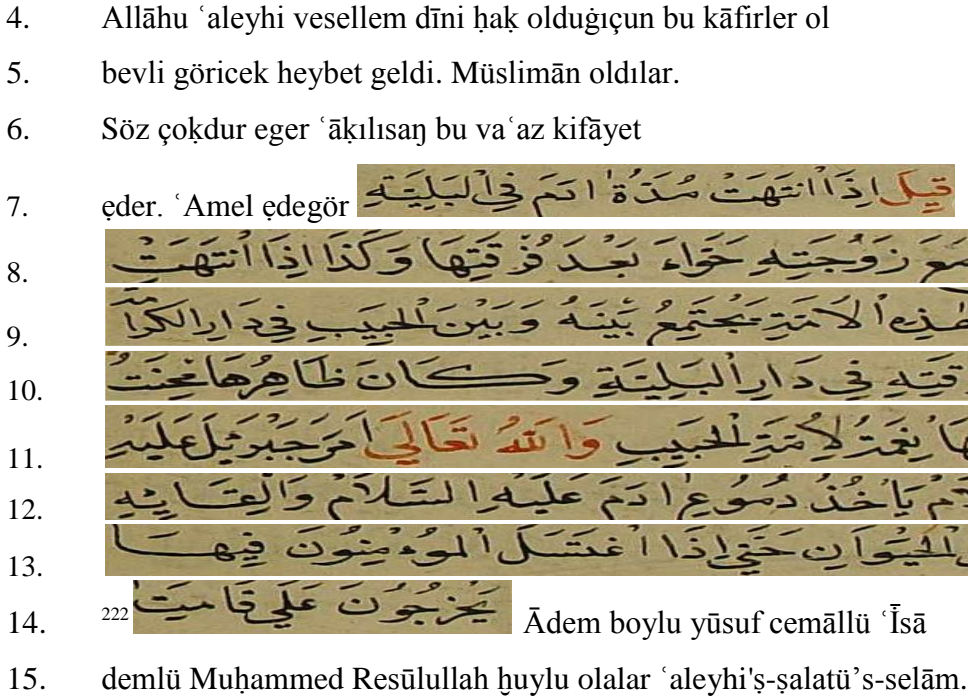 4. Allāhu ʿaleyhi vesellem dīni ḥaḳ olduġıçun bu kāfirler ol
5. bevli göricek heybet geldi. Müslimān oldılar.
6. Söz çoḳdur eger ʿāḳılısaŋ bu vaʿaz kifāyet
7. ẹder. ʿAmel ẹdegör قِيلَ اِذَا انْتَهَتْ مُدَّةُ اٰدَمَ فِي الْبَلِيَّةِ
8. مَعَ زَوْجَتِهِ حَوَّاءَ بَعْدَ فُرْقَتِهَا وَكَذَا اِذَا انْتَهَتْ
9. هٰذِهِ الْاُمَّةِ يَجْتَمِعُ بَيْنَهُ وَبَيْنَ الْحَبِيبِ فِي دَارِ الْكَرَامَة
10. قَتِهِ فِي دَارِ الْبَلِيَّةِ وَكَانَ ظَاهِرُهَا مِحْنَتْ
11. هَا نِعْمَةٌ لِاُمَّةِ الْحَبِيبِ وَاللهُ تَعَالَي اَمَرَ جَبْرَئِلَ عَلَيْهِ
12. يَأْخُذُ دُمُوعِ اٰدَمَ عَلَيْهِ السَّلَامْ وَالْقَائِهِ
13. الْحَيَوَانِ حَتّٰي اِذَا اغْتَسَلَ الْمُؤْمِنُونَ فِيهَا
14. ²²² يَخْرُجُونَ عَلَي قَامَتِ Ādem boylu yūsuf cemāllü ʿĪsā
15. demlü Muḥammed Resūlullah ḫuylu olalar ʿaleyhi'ṣ-ṣalatü’s-selām.